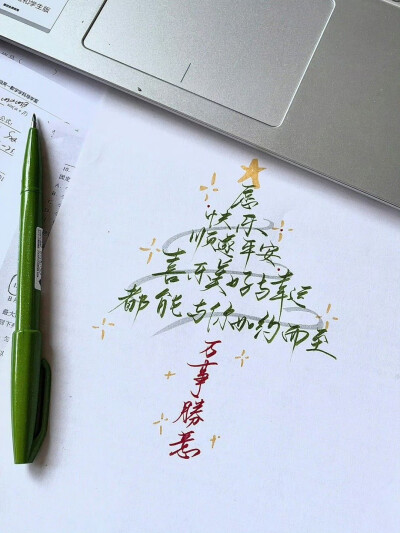 和学生版
愿
快乐
顺遂平安
喜乐美好与幸运
都能与你如约而至
万事勝意